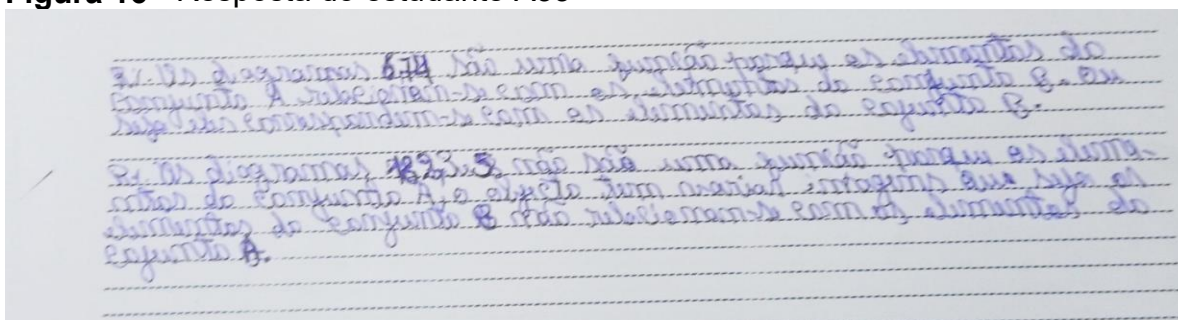 R. Os diagramas 6,7,4 são uma função porque os elementos do
conjunto A relacionam-se com os elementos do conjunto B. ou
seja eles correspondem-se com os elementos do conjunto B.
R. Os diagramas, 1,2,3,5 não são uma função porque os eleme-
ntos do conjunto A, o objeto tem imagens ou seja os
elementos do conjunto B não relacionam-se com os elementos do
cojunto A.